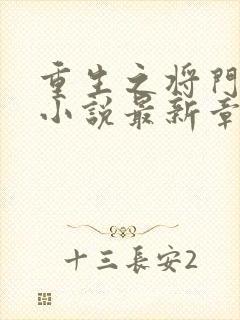 重生之将門
小説最新章
十三長安2